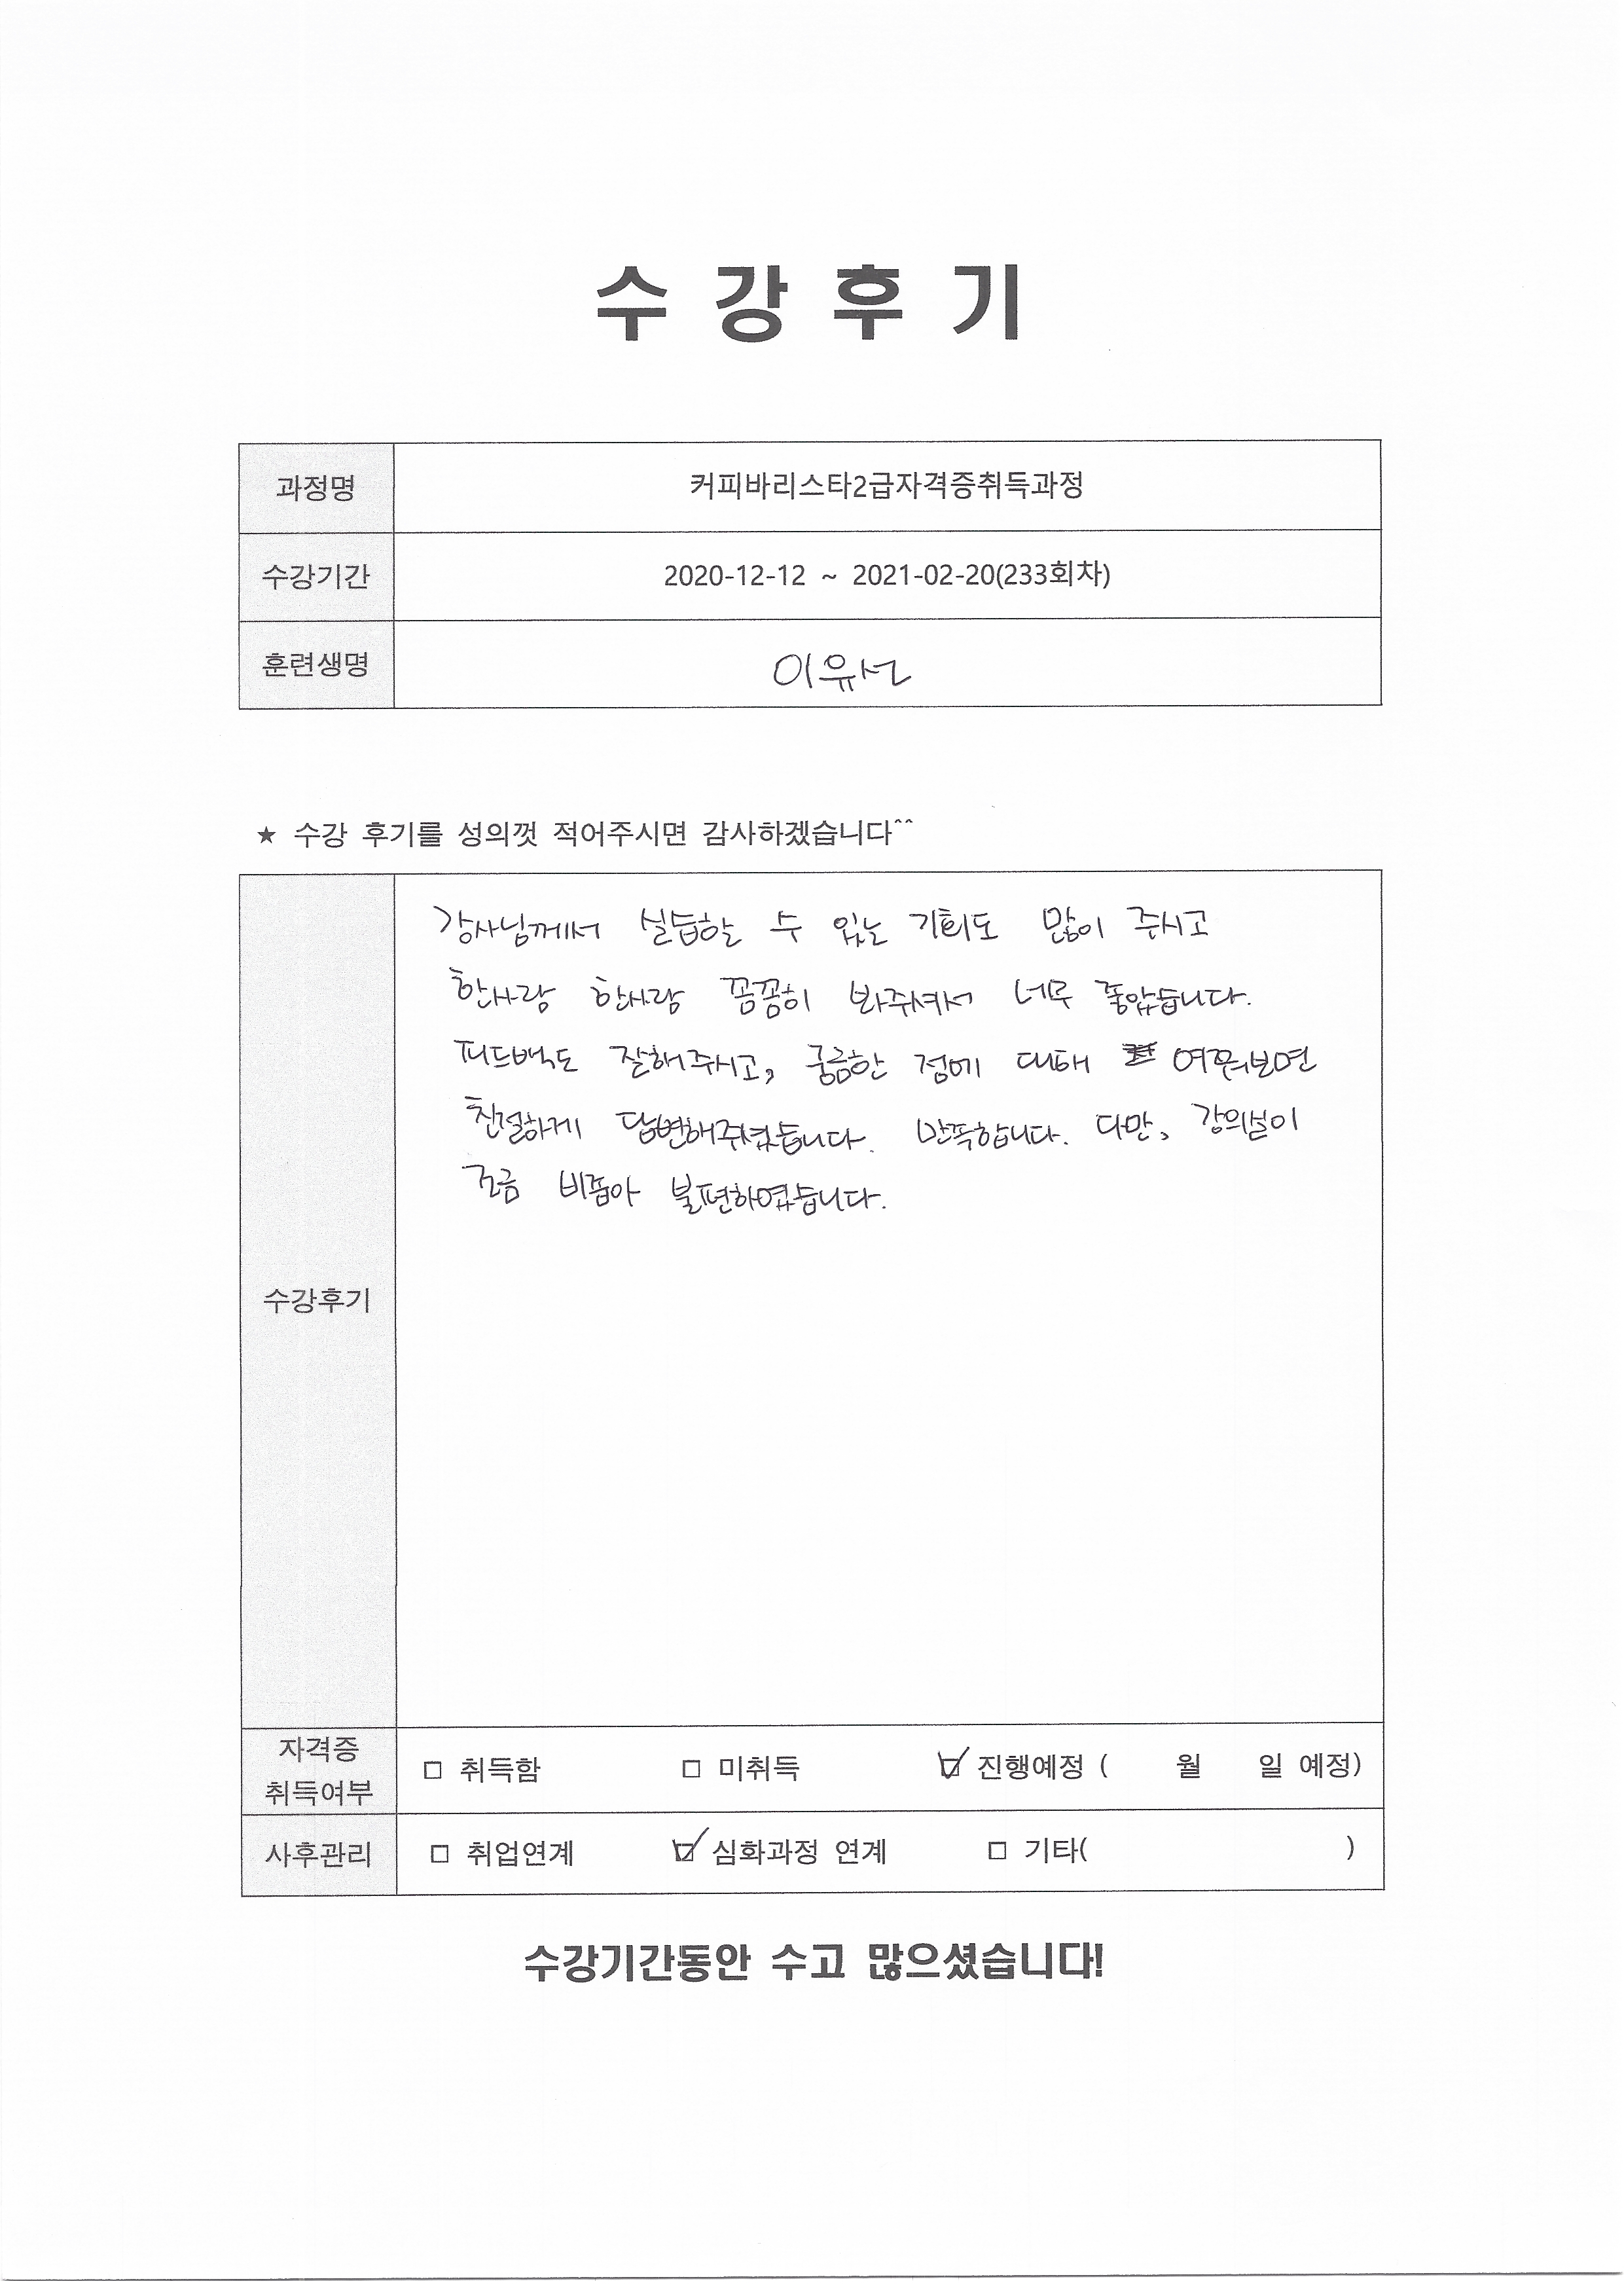 수 강 후 기
과정명 커피바리스타2급자격증취득과정
수강기간 2020-12-12 ~ 2021-02-20(233회차)
훈련생명 이유선
★ 수강 후기를 성의껏 적어주시면 감사하겠습니다^^
강사님께서 실습할 수 있는 기회도 많이 주시고
한사람 한사람 꼼꼼히 봐주셔서 너무 좋았습니다.
피드백도 잘해주시고, 궁금한 점에 대해 여쭤보면
친절하게 답변해주셨습니다. 만족합니다. 다만, 강의실이
조금 비좁아 불편하였습니다.
수강후기
자격증
취득여부
□ 취득함 □ 미취득 ☑ 진행예정 ( 월 일 예정)
사후관리 □ 취업연계 ☑ 심화과정 연계 □ 기타( )
수강기간동안 수고 많으셨습니다!